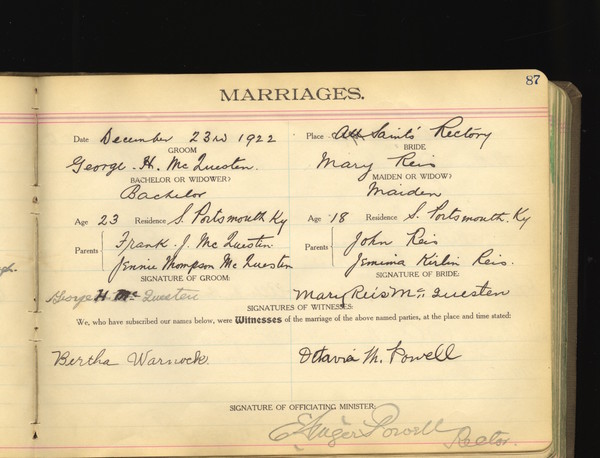 87
MARRIAGES.
Date December 23rd 1922 Place All Saints' Rectory
GROOM BRIDE
George H. McQuesten. Mary Reis
BACHELOR OR WIDOWER? MAIDEN OR WIDOW?
Bachelor Maiden
Age 23 Residence S. Portsmouth Ky Age 18 Residence S. Portsmouth. Ky
Parents Frank. J. McQuesten Parents John Reis
Jennie Thompson McQuesten Jemima Kirlin Reis.
SIGNATURE OF GROOM: SIGNATURE OF BRIDE:
George H Mc Questen Mary Reis Mc Questen
SIGNATURES OF WITNESSES:
We, who have subscribed our names below, were Witnesses of the marriage of the above named parties, at the place and time stated:
Bertha Warnock Ottavia M. Powell
SIGNATURE OF OFFICIATING MINISTER:
Powell Rector.